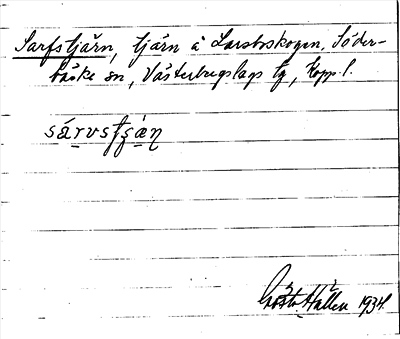 Sarfstjärn, tjärn å Larsboskogen, Söder-
bärke sn, Västerbergslags tg, Kopp. l.
sárvstjän
Gösta Hallén 1934.